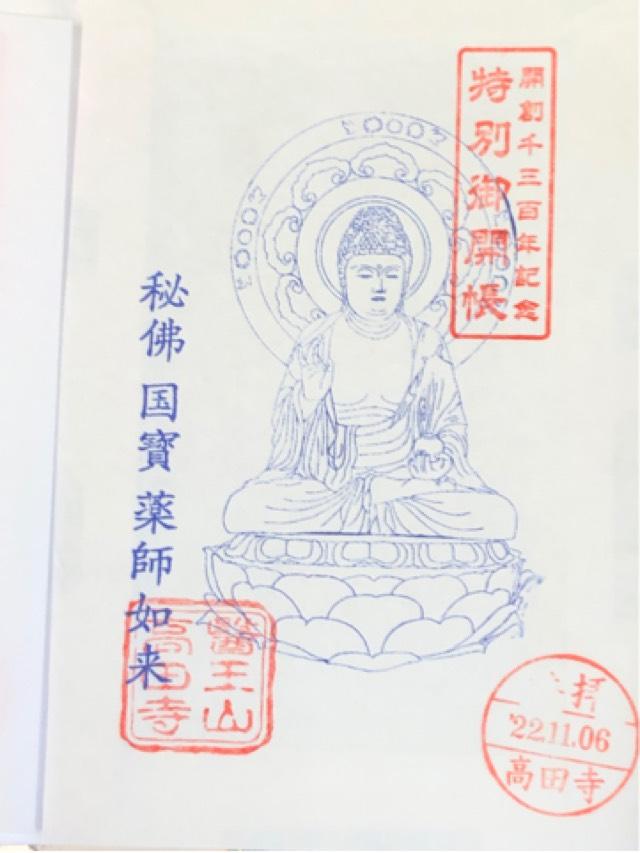 開創千三百年記念
特別御開帳
秘佛 国寳 薬師如来
醫王山
高田寺
拝
'22.11.06
高田寺